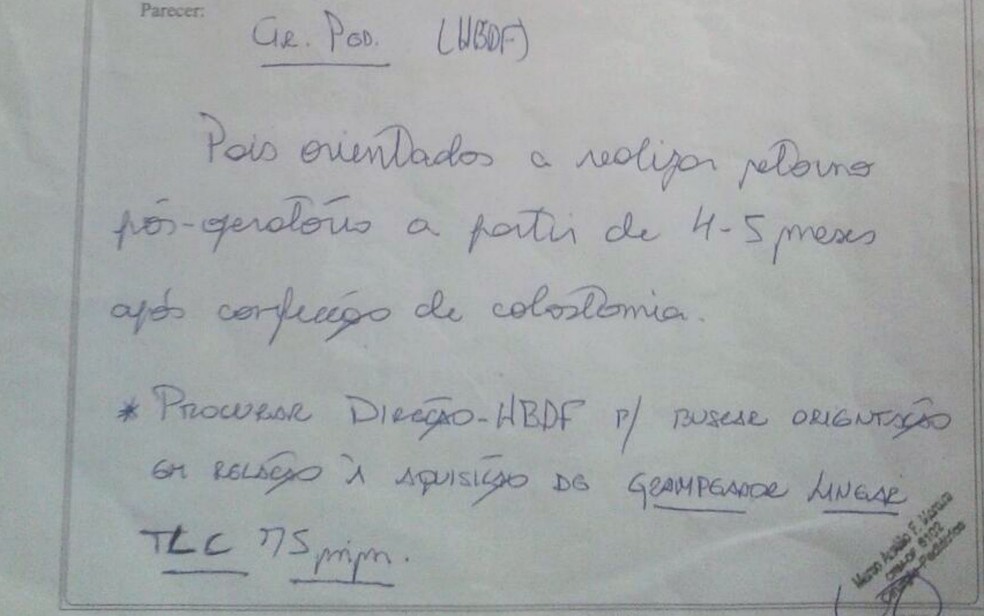 Parecer:
Cir. Ped. (HBDF)
Pais orientados a realizar retorno
pós-operatório a partir de 4-5 meses
após confecção de colostomia.
* PROCURAR DIREÇÃO-HBDF P/ BUSCAR ORIENTAÇÃO
EM RELAÇÃO À AQUISIÇÃO DE GRAMPEADOR LINEAR
TLC 75 mm.